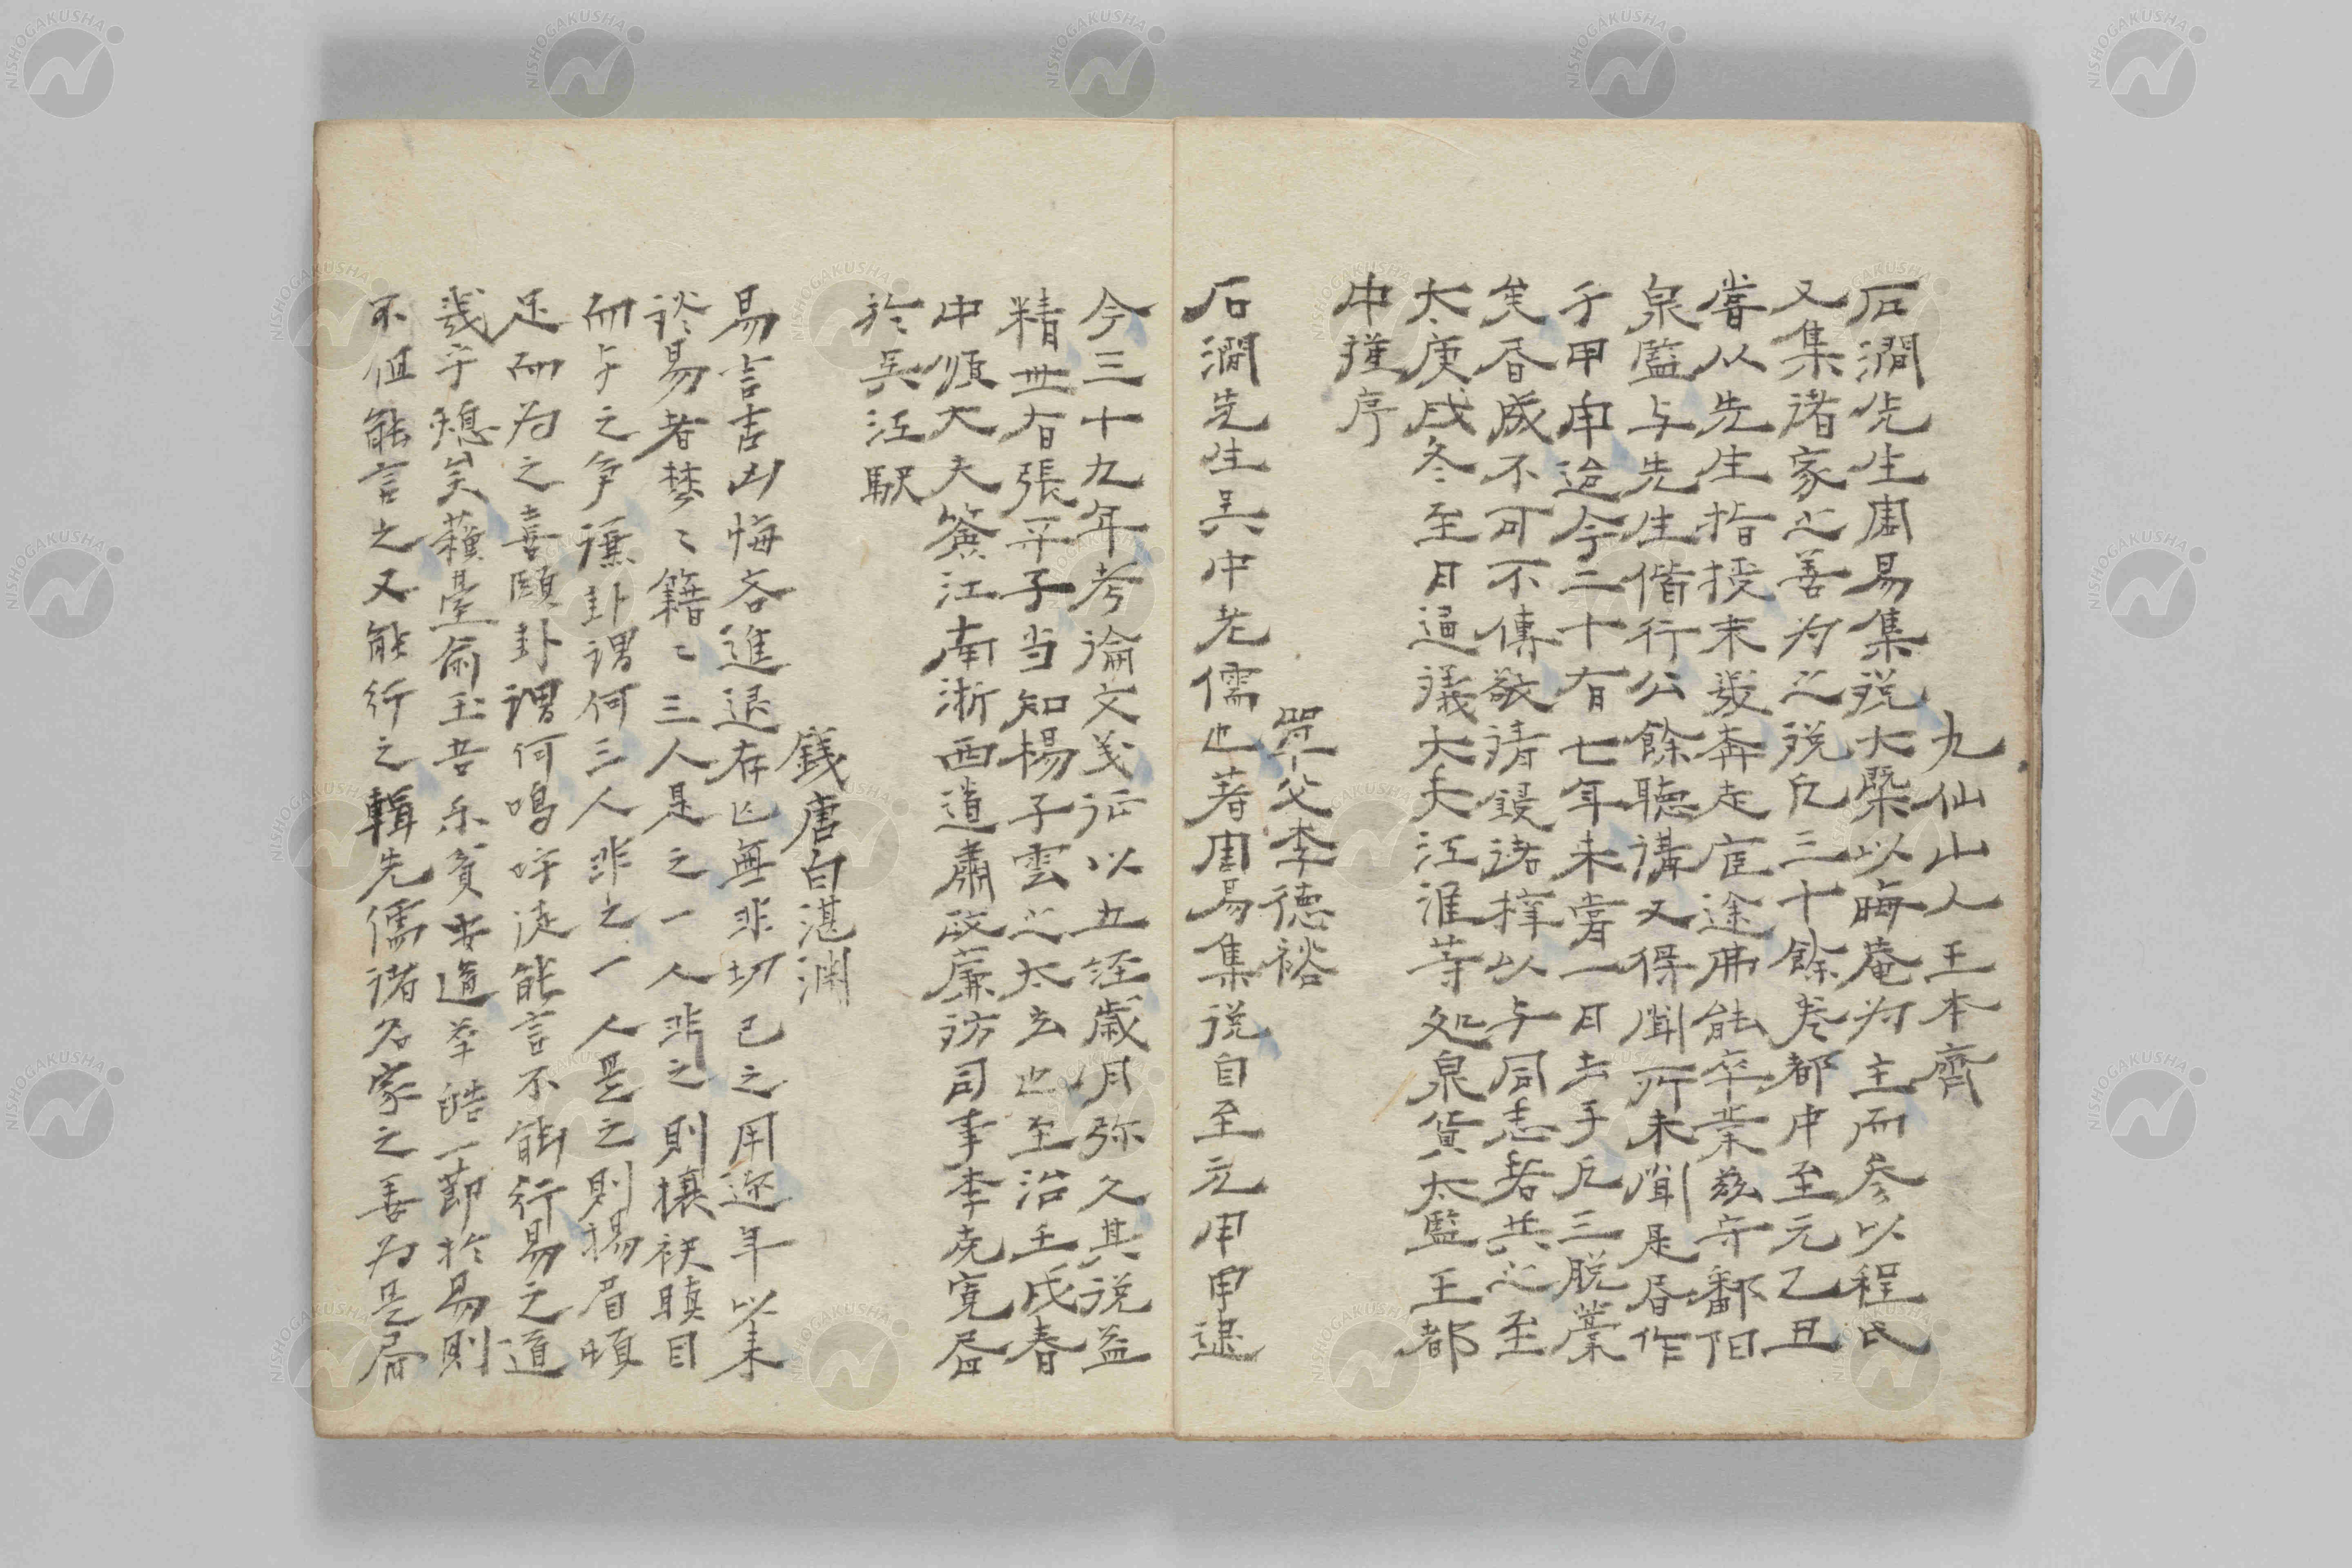 九仙山人王本齊
石澗先生周易集説大槩以晦庵为主而参以程氏
又集诸家之善为之説凡三十餘卷都中至元乙丑
嘗从先生指授未幾奔走宦途弗能卒業兹守鄱阳
泉監与先生偕行公餘聴講又得聞所未聞是昬作
于甲申迨今二十有七年未嘗一日去手凡三脱藁
矣昬成不可不傳敬請鋟诸梓以与同志者共之至
大庚戌冬至日通議大夫江淮等処泉貨太監王都
中撞序
単父李德裕
石澗先生吴中老儒也著周易集説自至元甲申逮
今三十九年考論文义证以五経歳月弥久其说益
精世有張平子当知楊子雲之太玄也至治壬戌春
中順大夫簽江南浙西道肅政廉訪司事李克寛昬
於吴江駅
銭唐白湛渊
易言吉凶悔吝進退存亡無非切己之用迩年以来
谈易者棼〻籍〻三人是之一人非之則攘袂瞋目
而与之争谦卦谓何三人非之一人是之則揚眉頓
足而为之喜頤卦谓何鳴呼徒能言不能行易之道
幾乎熄矣蘓臺俞玉吾乐貧安道莘皓一節於易則
不但能言之又能行之輯先儒诸名家之善为是昬